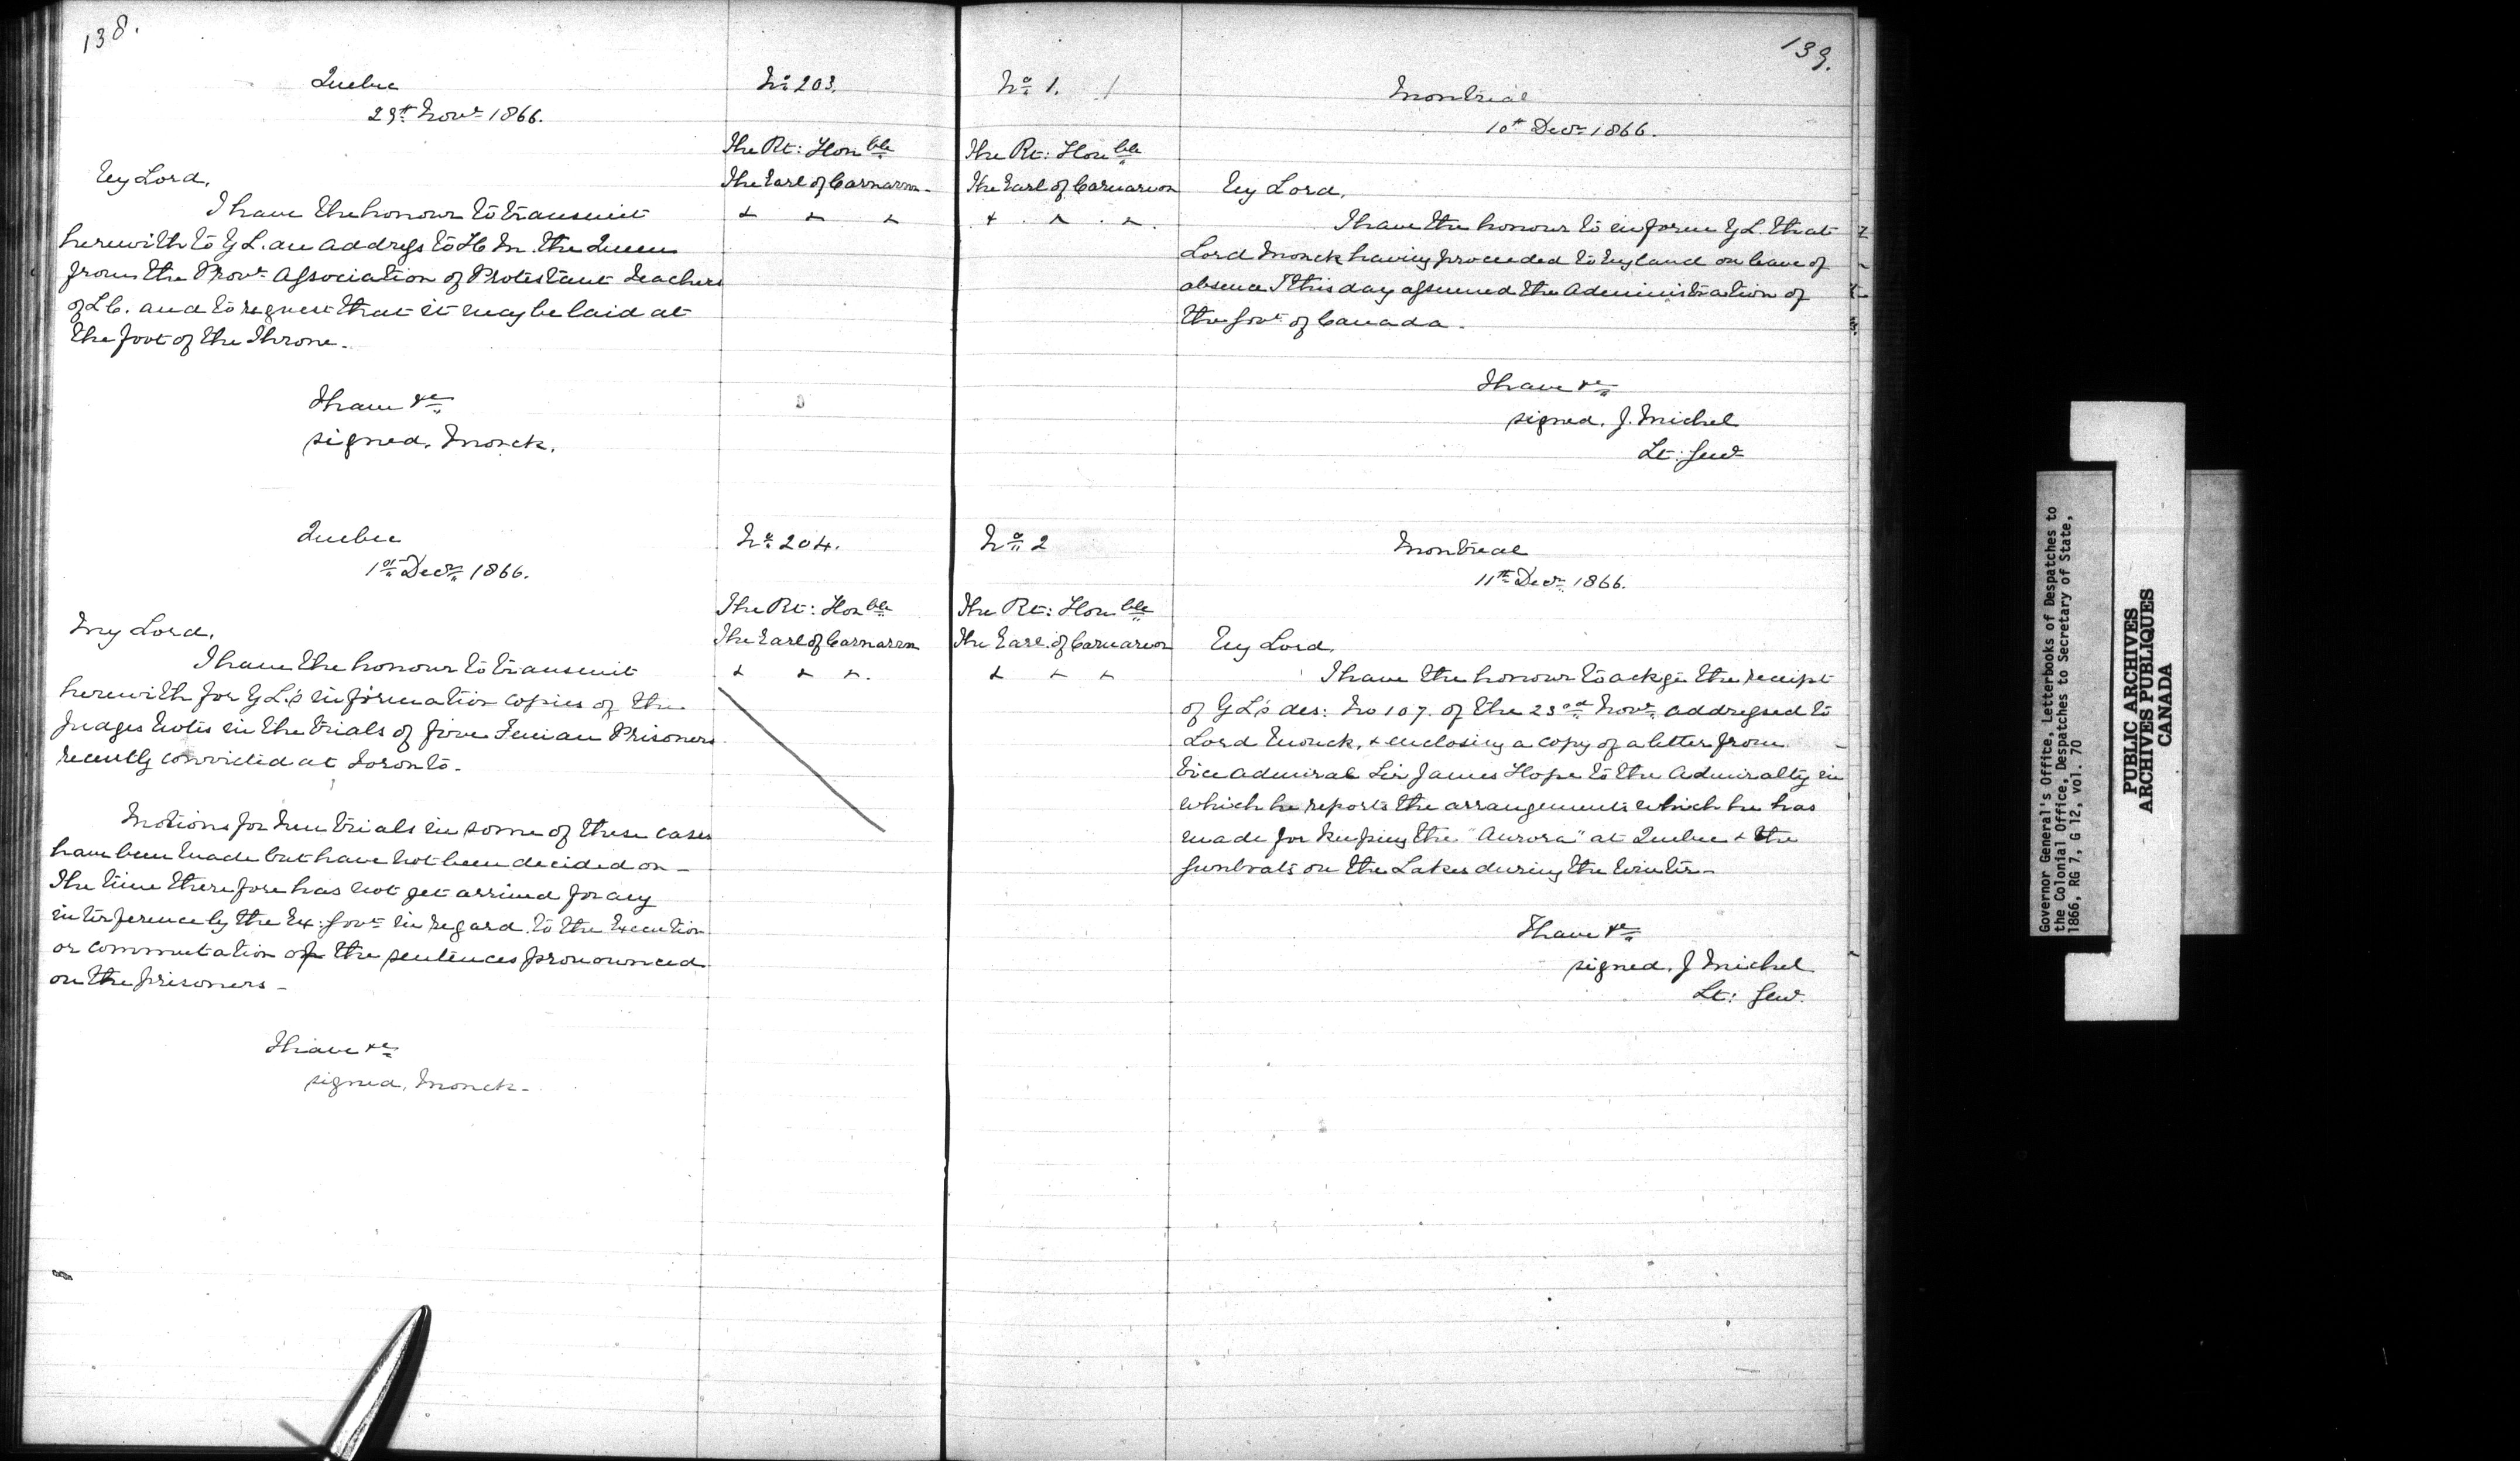 138.
Quebec
29th Novr 1866.
No 203.
The Rt: Honble
The Earl of Carnarvon
My Lord,
I have the honour to transmit
herewith to Y L. an address to H. M. the Queen
from the Provl Association of Protestant Teachers
of L C. and to request that it may be laid at
the foot of the Throne.
I have &c
signed, Monck.
Quebec
1st Decr 1866.
No 204.
The Rt: Honble
The Earl of Carnarvon
My Lord,
I have the honour to transmit
herewith for Y L's information copies of the
Judges notes in the trials of five Fenian Prisoners
recently convicted at Toronto.
Motions for new trials in some of these cases
have been made but have not been decided on -
The time therefore has not yet arrived for any
interference by the Ex: Govt in regard to the execution
or commutation of the sentences pronounced
on the prisoners -
I have &c
signed, Monck -
139.
No 1.
Montreal
10th Decr 1866.
The Rt: Honble
The Earl of Carnarvon
My Lord,
I have the honour to inform Y L. that
Lord Monck having proceeded to England on leave of
absence I this day assumed the Administration of
the Govt of Canada.
I have &c
signed, J. Michel
Lt: Genl
No 2
Montreal
11th Decr 1866.
The Rt: Honble
The Earl of Carnarvon
My Lord,
I have the honour to ackge the receipt
of Y L's des: No 107. of the 23rd Novr addressed to
Lord Monck, & enclosing a copy of a letter from
Vice Admiral Sir James Hope to the Admiralty in
which he reports the arrangements which he has
made for keeping the "Aurora" at Quebec & the
Gunboats on the Lakes during the Winter -
I have &c
signed, J Michel
Lt: Genl.
Governor General's Office, Letterbooks of Despatches to
the Colonial Office, Despatches to Secretary of State,
1866, RG 7, G 12, vol. 70
PUBLIC ARCHIVES
ARCHIVES PUBLIQUES
CANADA